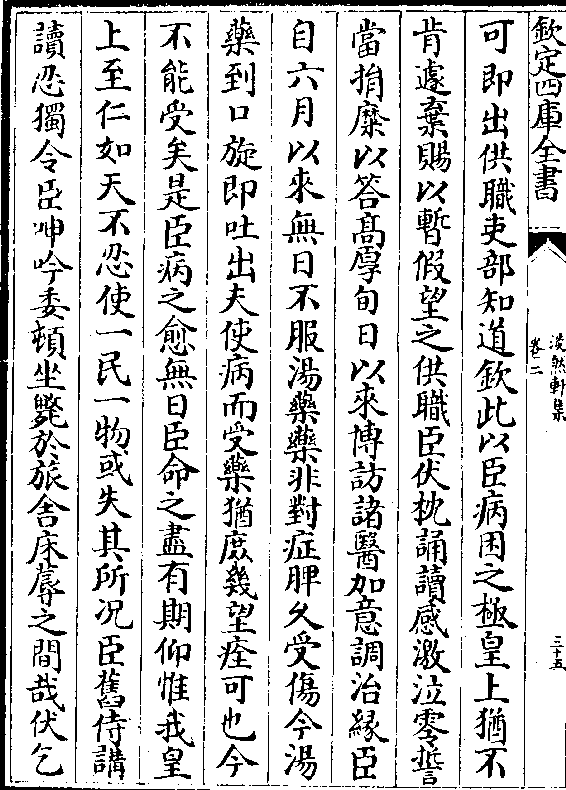 欽定四庫全書
淡然軒集
卷二
三十五
可即出供職吏部知道欽此以臣病困之極皇上猶不
肯遽棄賜以暫假望之供職臣伏枕誦讀感激泣零誓
當捐糜以答髙厚旬日以來博訪諸醫加意調治縁臣
自六月以來無日不服湯藥藥非對症脾久受傷今湯
藥到口旋即吐出夫使病而受藥猶庶幾望痊可也今
不能受矣是臣病之愈無日臣命之盡有期仰惟我皇
上至仁如天不忍使一民一物或失其所况臣舊侍講
讀忍獨令臣呻吟委頓坐斃於旅舎床蓐之間哉伏乞